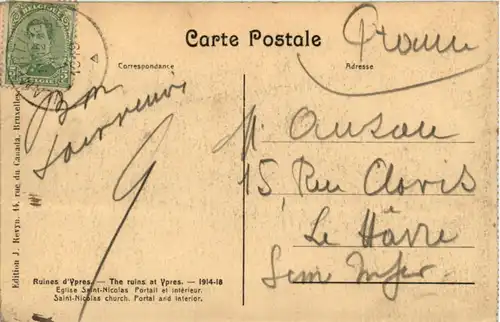 BELGIQUE
Carte Postale
France
Correspondance
Adresse
Bon
souvenir
M. Auzou
15, Rue Clovis
Le Hâvre
Seine Infer
Edition J. Revyn, 16, rue du Canada, Bruxelles
Ruines d'Ypres. — The ruins at Ypres. — 1914-18
Eglise Saint-Nicolas Portail et intérieur.
Saint-Nicolas church. Portal and interior.